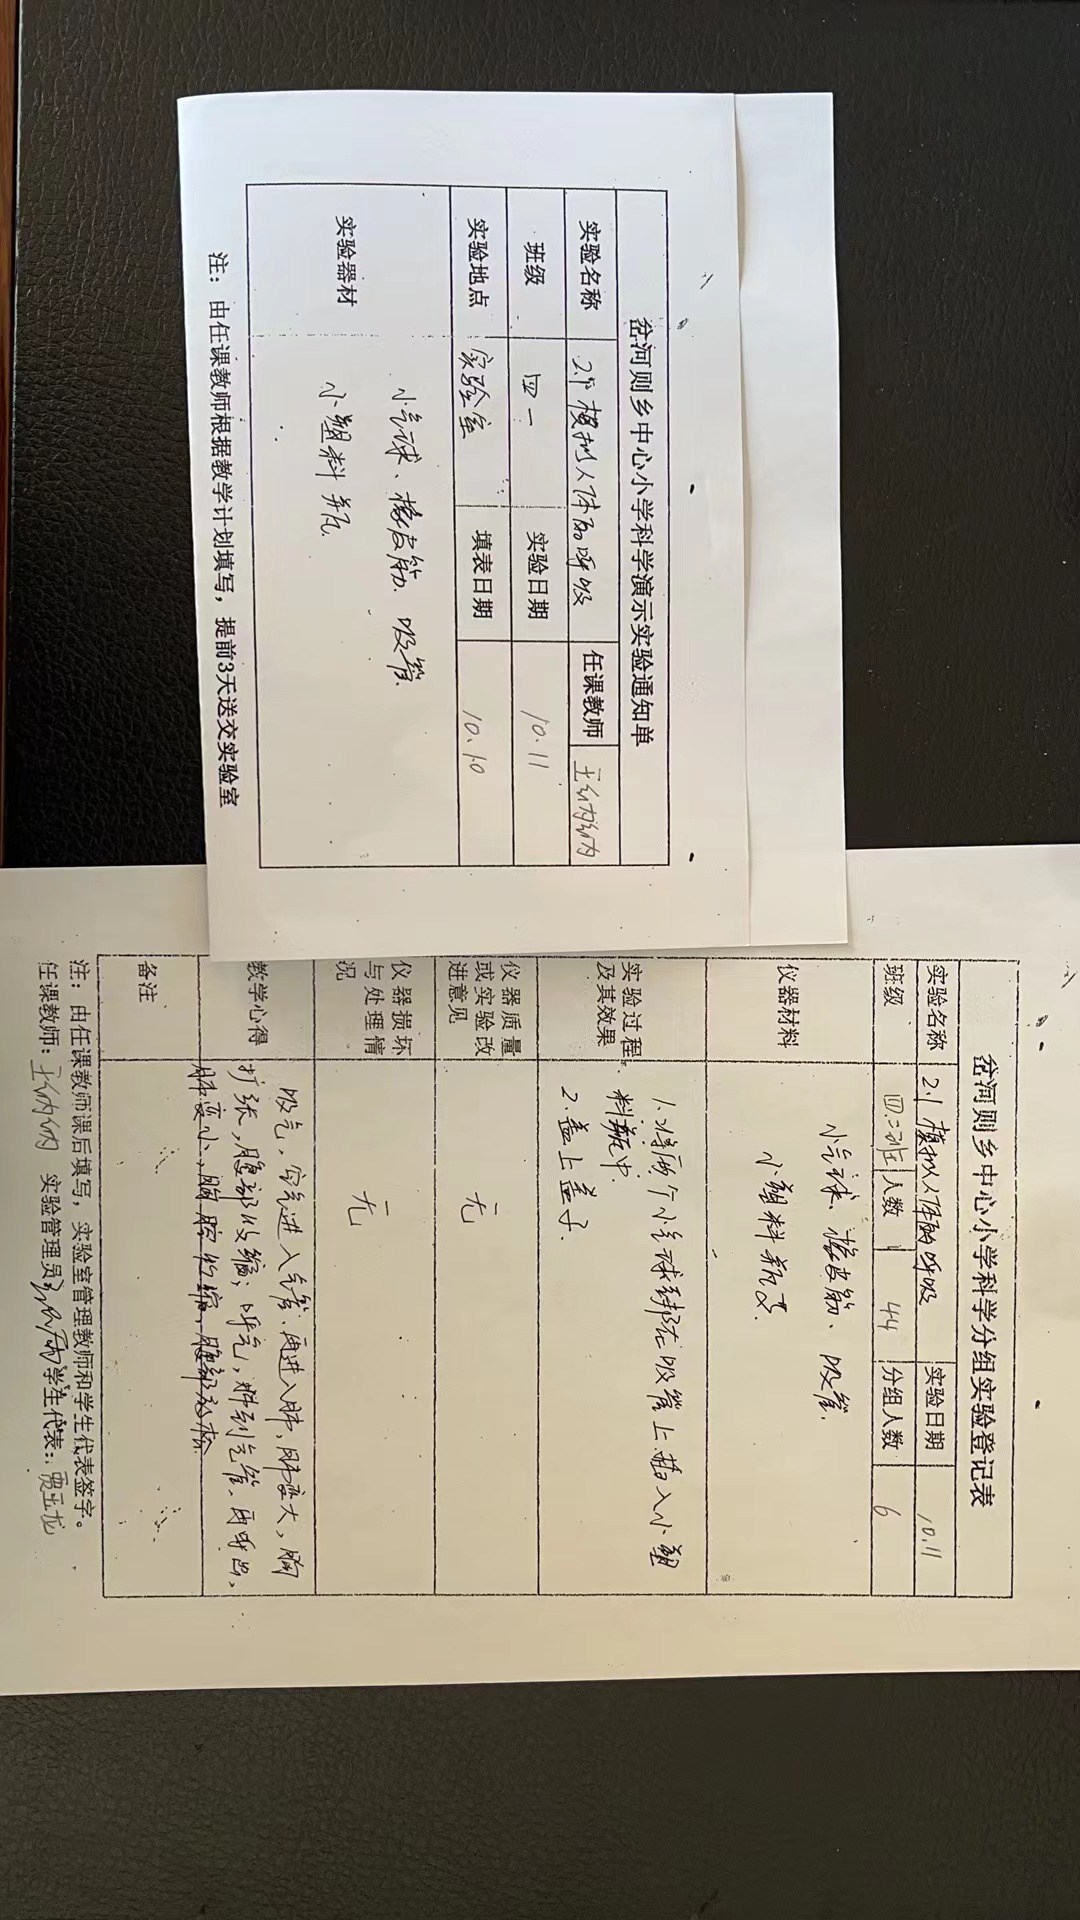 岔河则乡中心小学科学演示实验通知单
实验名称 2.1 模拟人体的呼吸 任课教师 王纳纳
班级 四一 实验日期 10.11
实验地点 实验室 填表日期 10.10
实验器材 小气球、橡皮筋、吸管、
小塑料瓶
注：由任课教师根据教学计划填写，提前3天送交实验室
岔河则乡中心小学科学分组实验登记表
实验名称 2.1 模拟人体的呼吸 实验日期 10.11
班级 四.二班 人数 44 分组人数 6
仪器材料 小气球、橡皮筋、吸管、
小塑料瓶
实验过程及其效果 1.将两个小气球绑在吸管上.插入小塑
料瓶中.
2.盖上盖子.
仪器质量或实验改进意见 无
仪器损坏与处理情况 无
教学心得 吸气，空气进入气管、再进入肺，肺变大，胸
扩张，腹部收缩；呼气，肺到气管、再呼出，
肺变小，胸腔收缩，腹部
备注
注：由任课教师课后填写，实验室管理教师和学生代表签字。
任课教师：王纳纳 实验管理员 学生代表：贾玉龙